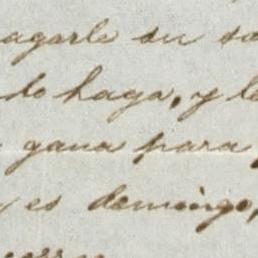 agarle su sa
lo haga, y le
gana para
es domingo,